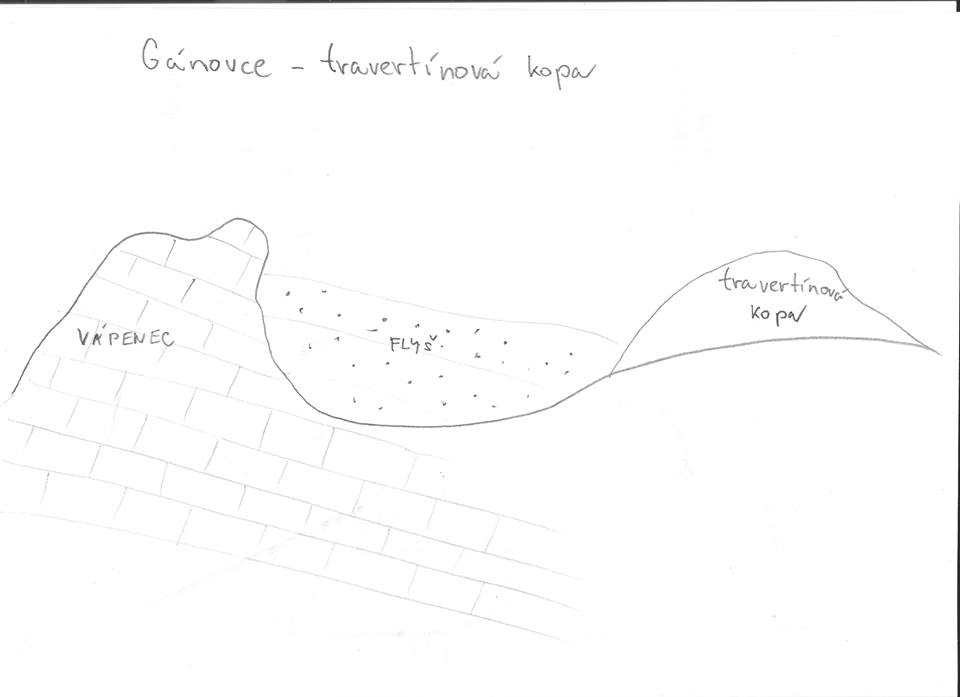 Gánovce - travertínová kopa
travertínová
kopa
VÁPENEC
FLYŠ